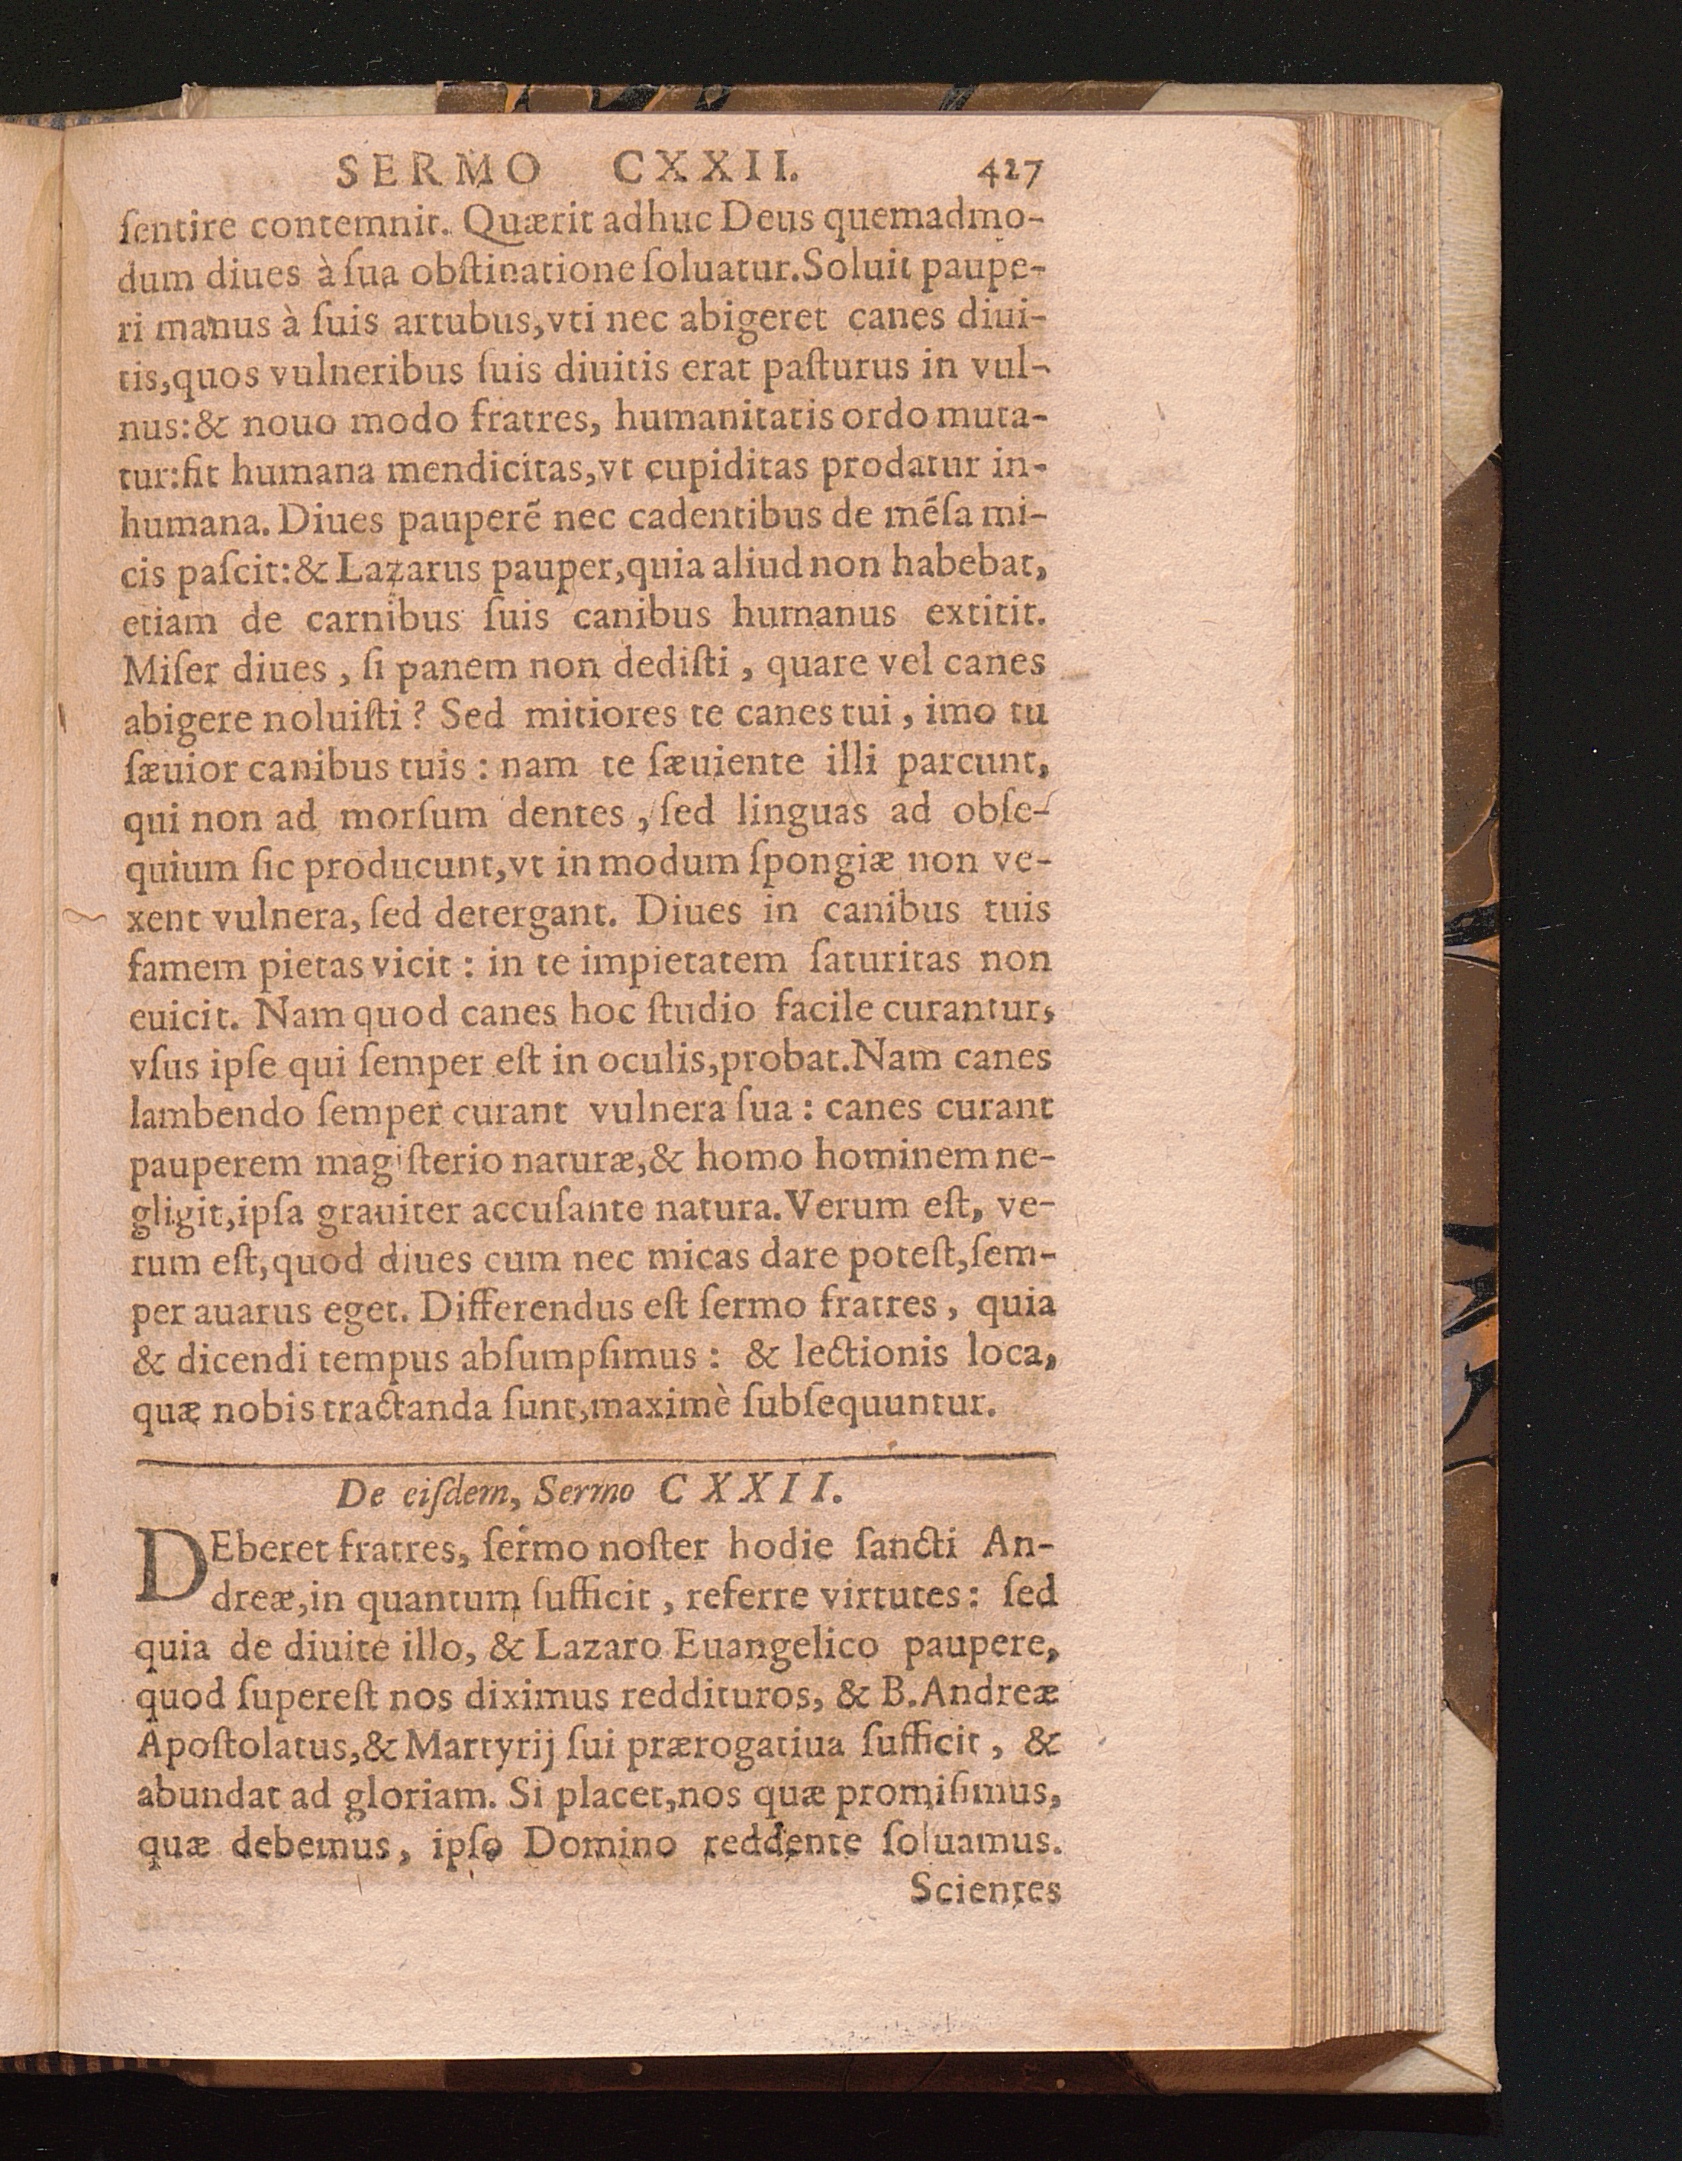 SERMO CXXII. 427
ſentire contemnit. Quærit adhuc Deus quemadmo-
dum diues à ſua obſtinatione ſoluatur. Soluit paupe-
ri manus à ſuis artubus, vti nec abigeret canes diui-
tis, quos vulneribus ſuis diuitis erat paſturus in vul-
nus: & nouo modo fratres, humanitatis ordo muta-
tur: fit humana mendicitas, vt cupiditas prodatur in-
humana. Diues pauperẽ nec cadentibus de mẽſa mi-
cis paſcit: & Lazarus pauper, quia aliud non habebat,
etiam de carnibus ſuis canibus humanus extitit.
Miſer diues, ſi panem non dediſti, quare vel canes
abigere noluiſti? Sed mitiores te canes tui, imo tu
ſæuior canibus tuis: nam te ſæuiente illi parcunt,
qui non ad morſum dentes, ſed linguas ad obſe-
quium ſic producunt, vt in modum ſpongiæ non ve-
xent vulnera, ſed detergant. Diues in canibus tuis
famem pietas vicit: in te impietatem ſaturitas non
euicit. Nam quod canes hoc ſtudio facile curantur,
vſus ipſe qui ſemper eſt in oculis, probat. Nam canes
lambendo ſemper curant vulnera ſua: canes curant
pauperem magiſterio naturæ, & homo hominem ne-
gligit, ipſa grauiter accuſante natura. Verum eſt, ve-
rum eſt, quod diues cum nec micas dare poteſt, ſem-
per auarus eget. Differendus eſt ſermo fratres, quia
& dicendi tempus abſumpſimus: & lectionis loca,
quæ nobis tractanda ſunt, maximè ſubſequuntur.
De eiſdem, Sermo CXXII.
DEberet fratres, ſermo noſter hodie ſancti An-
dreæ, in quantum ſufficit, referre virtutes: ſed
quia de diuite illo, & Lazaro Euangelico paupere,
quod ſupereſt nos diximus reddituros, & B. Andreæ
Apoſtolatus, & Martyrij ſui prærogatiua ſufficit, &
abundat ad gloriam. Si placet, nos quæ promiſimus,
quæ debemus, ipſo Domino reddente ſoluamus.
Scientes